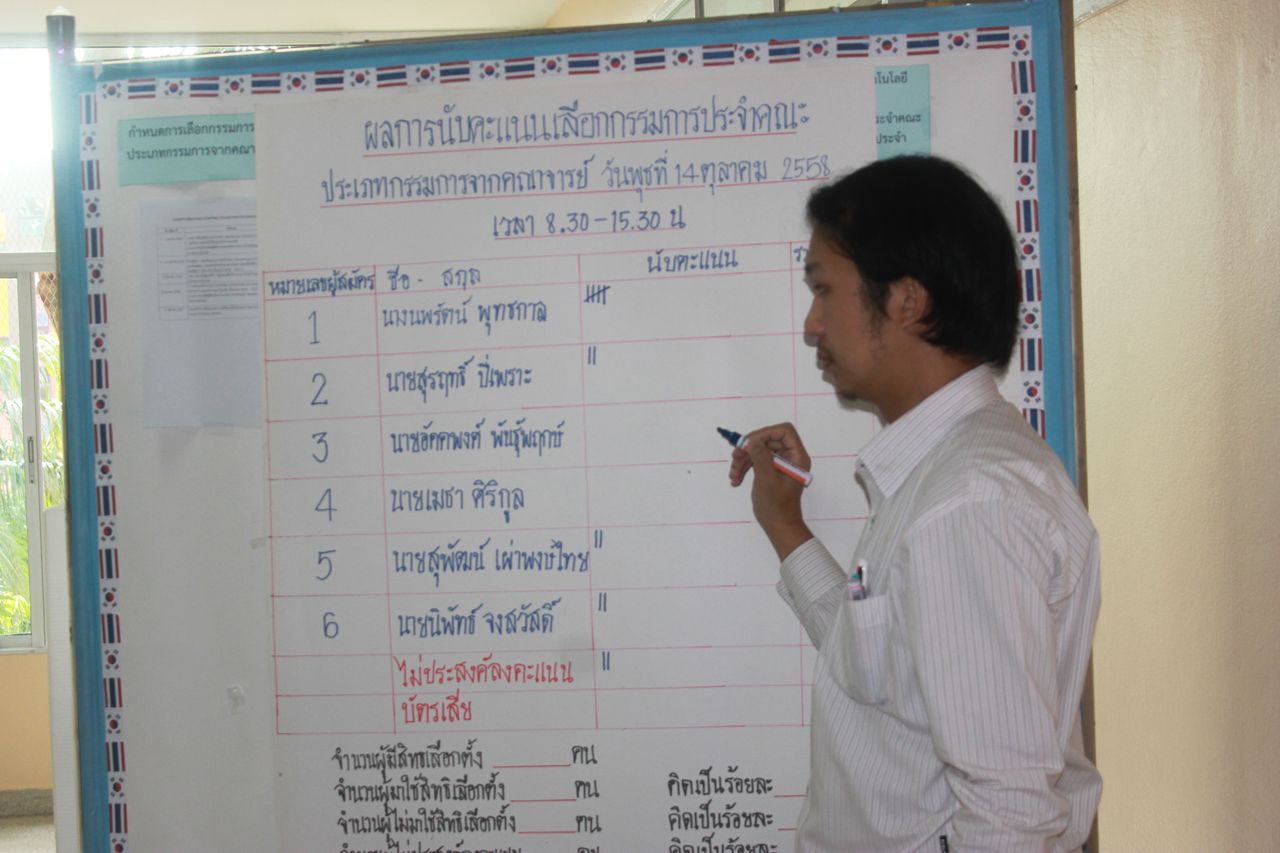 กำหนดการเลือกกรรมการ
ประเภทกรรมการจากคณา
คโนโลยี
ะจำคณะ
ประจำ
ผลการนับคะแนนเลือกกรรมการประจำคณะ
ประเภทกรรมการจากคณาจารย์ วันพุธที่ 14 ตุลาคม 2558
เวลา 8.30 - 15.30 น
หมายเลขผู้สมัคร ชื่อ - สกุล นับคะแนน
1 นางนพรัตน์ พุทธกาล
2 นายสุรฤทธิ์ ปี่เพราะ
3 นายอัคคพงศ์ พันธุ์พฤกษ์
4 นายเมธา ศิริกูล
5 นายสุพัฒน์ เผ่าพงษ์ไทย
6 นายนิพัทธ์ จงสวัสดิ์
ไม่ประสงค์ลงคะแนน
บัตรเสีย
จำนวนผู้มีสิทธเลือกตั้ง คน
จำนวนผู้มาใช้สิทธิเลือกตั้ง คน คิดเป็นร้อยละ
จำนวนผู้ไม่มาใช้สิทธิเลือกตั้ง คน คิดเป็นร้อยละ
จำนวนผู้ไม่ประสงค์ลงคะแนน คน คิดเป็นร้อยละ